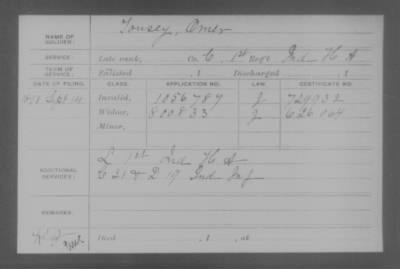 NAME OF SOLDIER: Tousey, Omer
SERVICE: Late rank, Co. C, 1st Regt. Ind H A
TERM OF SERVICE: Enlisted , 1 Discharged , 1
DATE OF FILING. CLASS. APPLICATION NO. LAW. CERTIFICATE NO.
Sept Invalid, 1056789 J 729932
Widow, 800833 J 626064
Minor,
L 1st Ind H A
ADDITIONAL SERVICES: C 21 & D 19 Ind Inf
REMARKS:
Died , 1 , at